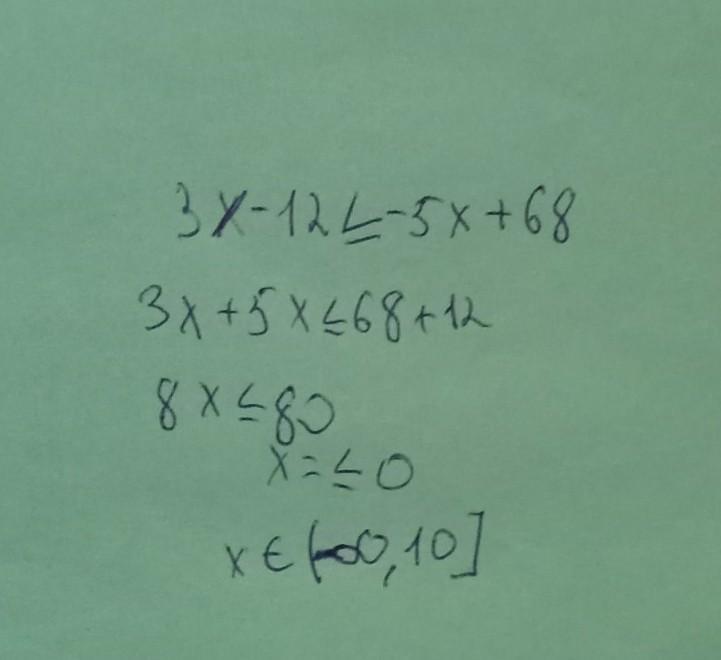 3x-12≤-5x+68
3x+5x≤68+12
8x≤80
x=≤0
x∈(-∞,10]